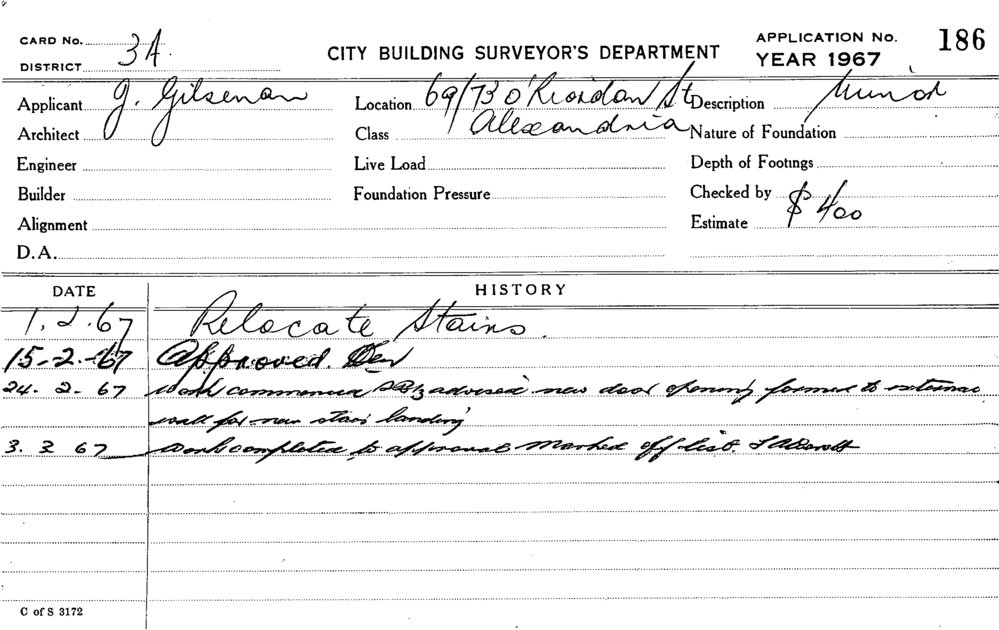 CARD No.
DISTRICT 3A.
CITY BUILDING SURVEYOR'S DEPARTMENT
APPLICATION No. 186
YEAR 1967
Applicant J. Gilsenan
Location 69/73 O'Riordan St
Alexandria
Description Minor
Architect
Class
Nature of Foundation
Engineer
Live Load
Depth of Footings
Builder
Foundation Pressure
Checked by
Alignment
Estimate $400
D.A.
DATE HISTORY
1.2.67 Relocate Stairs.
15-2-67 Approved.
24. 2. 67 Work commenced advised new door opening formed to external
wall for new stair landing
3. 3 67 Work completed to approval marked off list.
C of S 3172